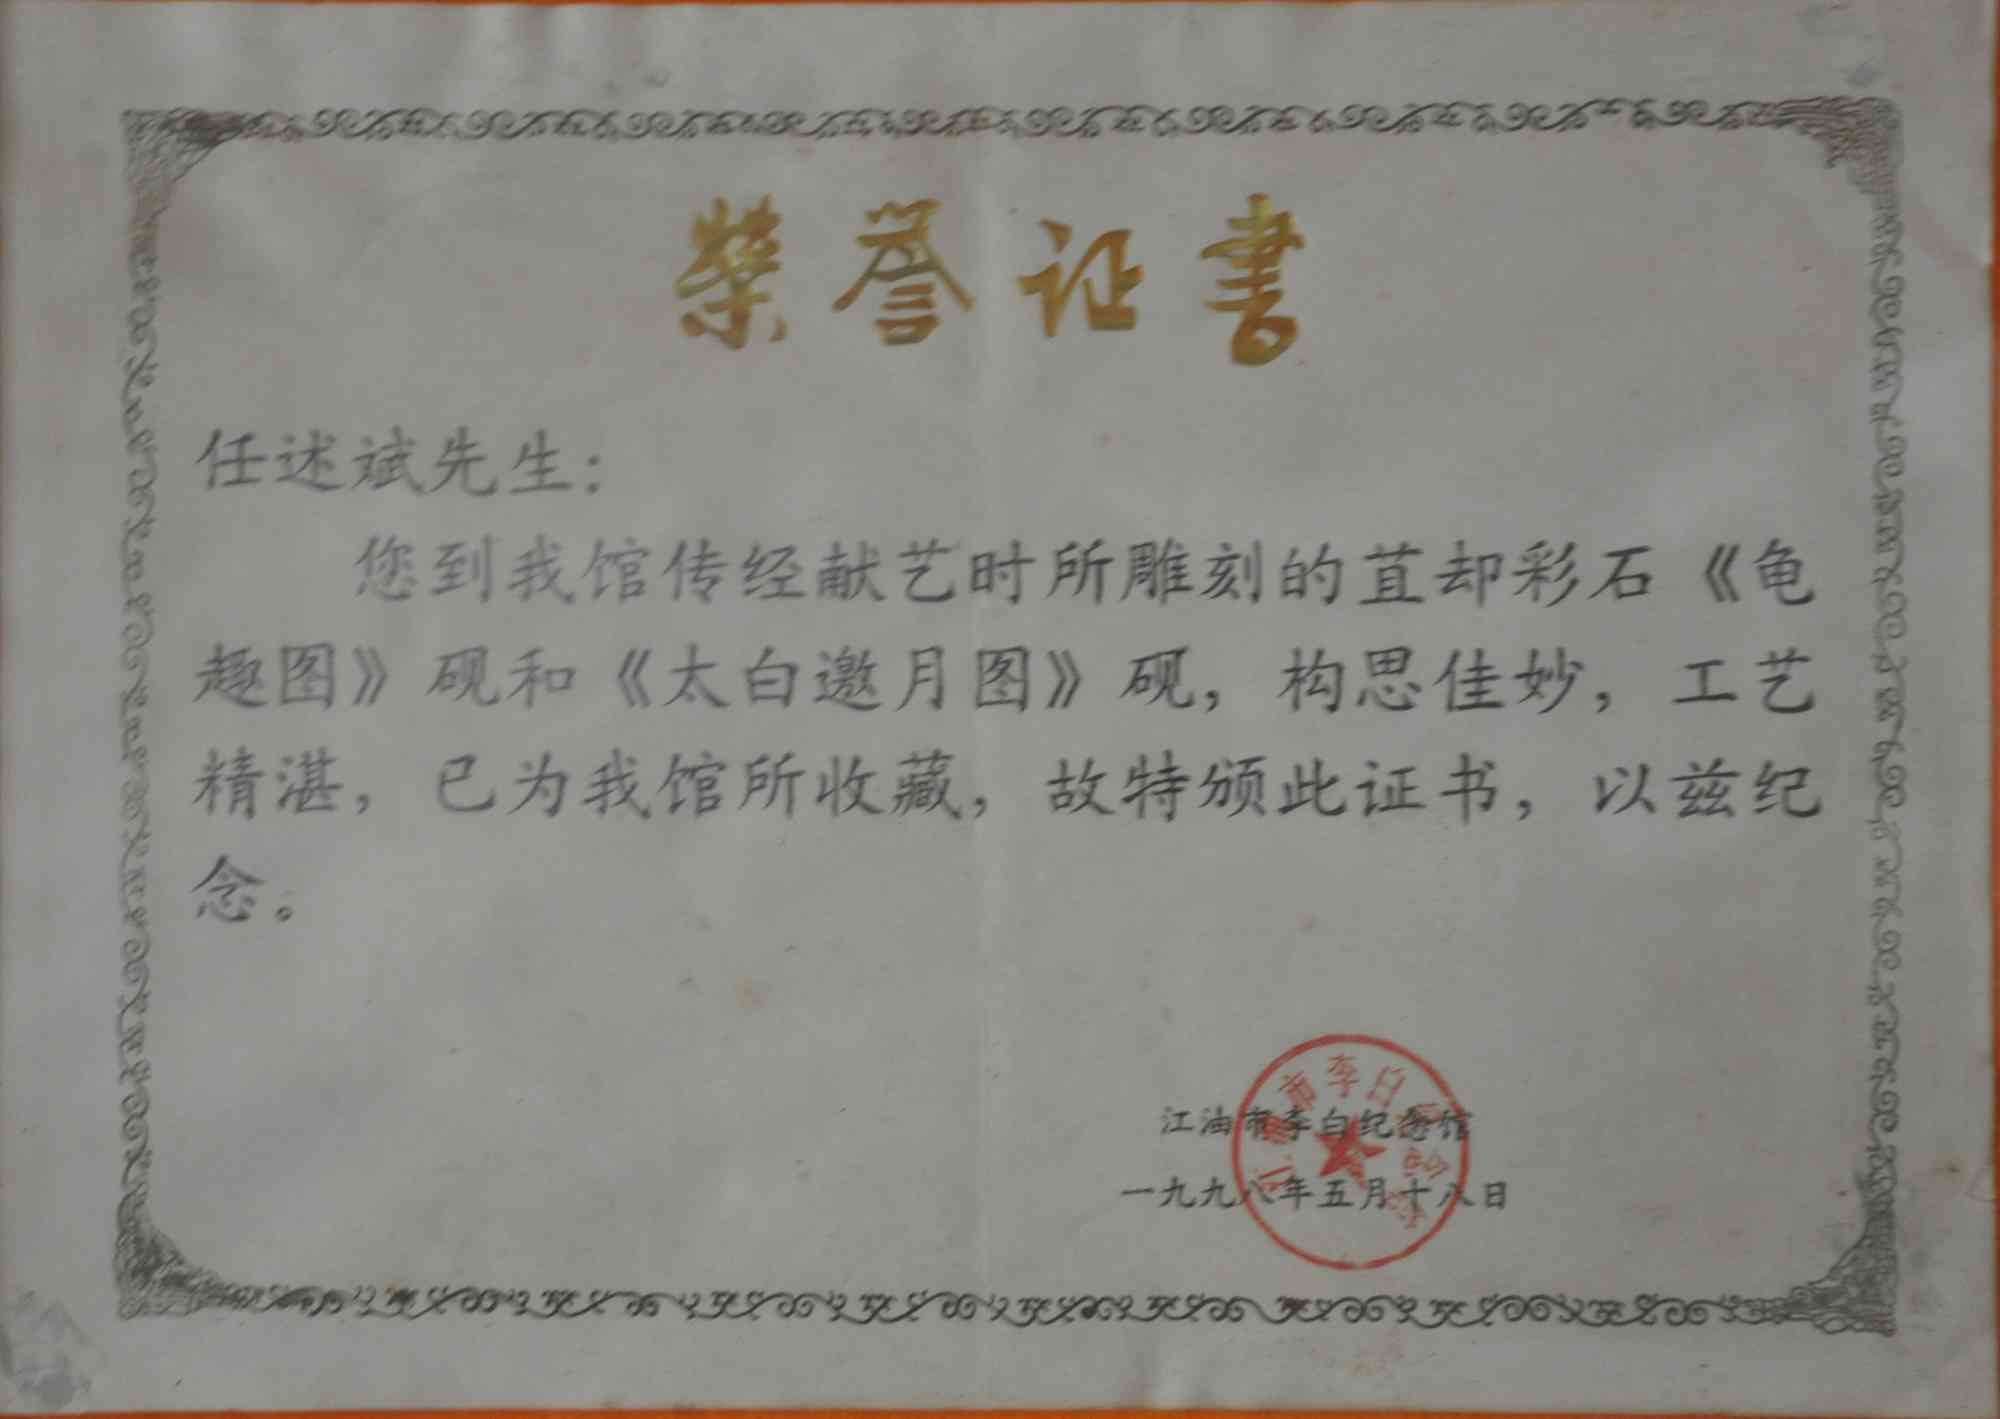 荣誉证书
任述斌先生：
您到我馆传经献艺时所雕刻的苴却彩石《龟
趣图》砚和《太白邀月图》砚，构思佳妙，工艺
精湛，已为我馆所收藏，故特颁此证书，以兹纪
念。
江油市李白纪念馆
一九九八年五月十八日